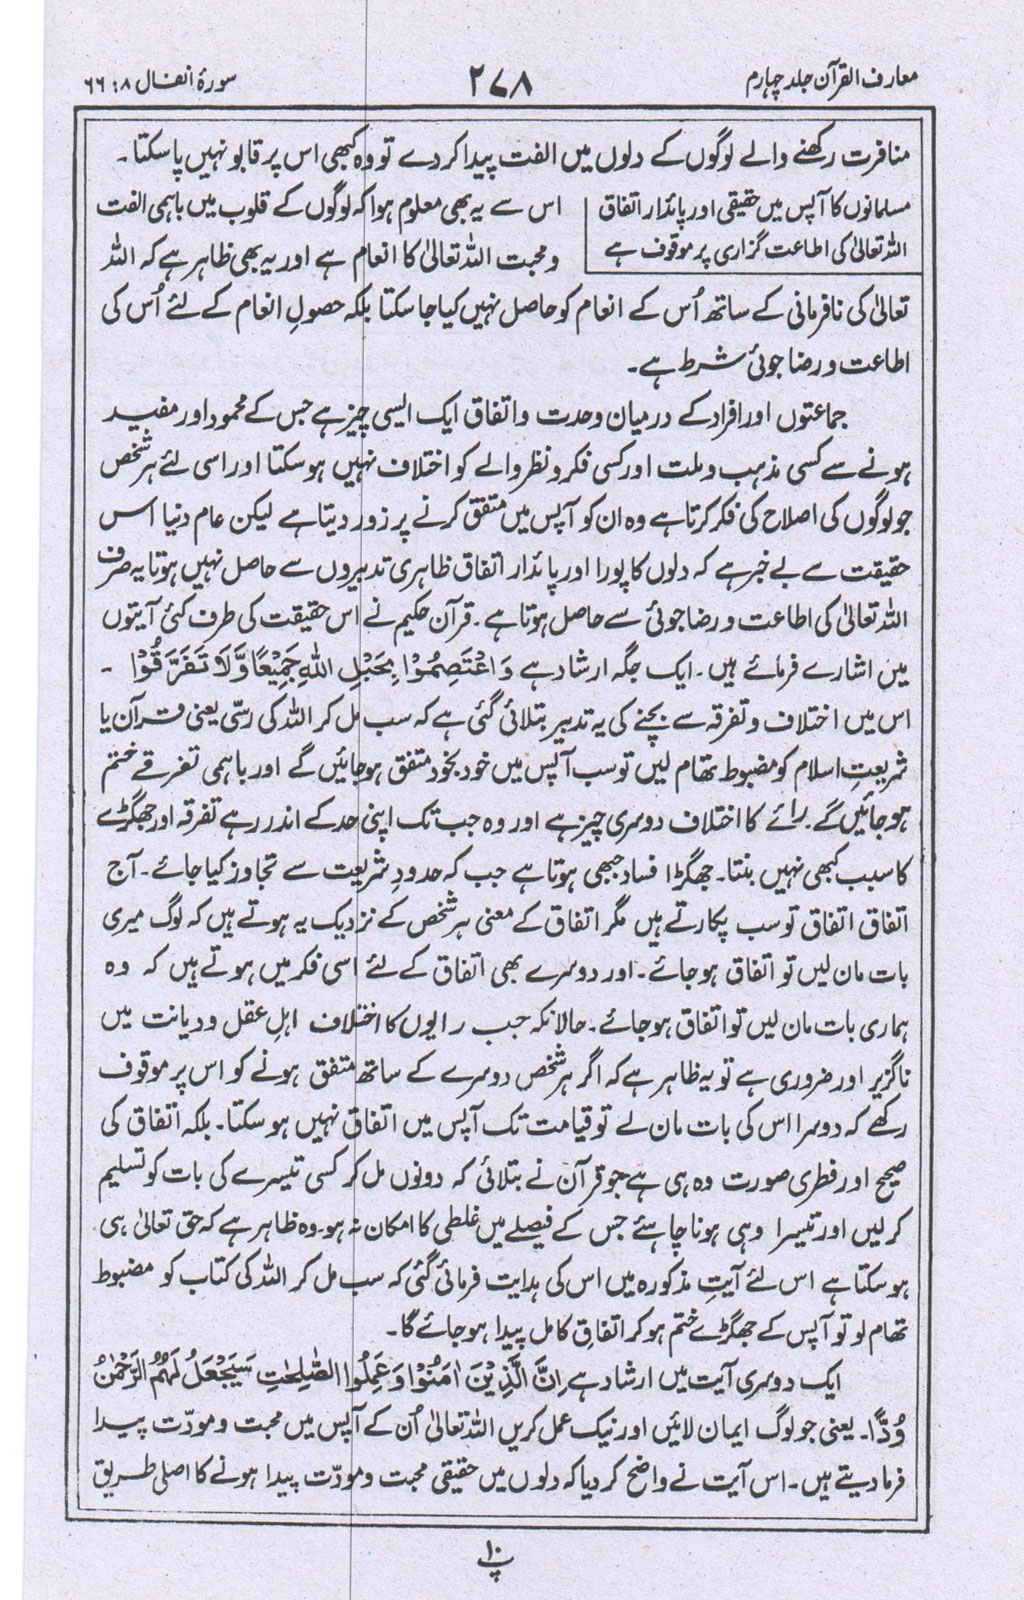 معارف القرآن جلد چہارم
۲۷۸
سورۂ انفال ۸ : ۶۶
منافرت رکھنے والے لوگوں کے دلوں میں الفت پیدا کر دے تو وہ کبھی اس پر قابو نہیں پا سکتا۔
مسلمانوں کا آپس میں حقیقی اور پائدار اتفاق
اللہ تعالیٰ کی اطاعت گزاری پر موقوف ہے
اس سے یہ بھی معلوم ہوا کہ لوگوں کے قلوب میں باہمی الفت
و محبت اللہ تعالیٰ کا انعام ہے اور یہ بھی ظاہر ہے کہ اللہ
تعالیٰ کی نافرمانی کے ساتھ اُس کے انعام کو حاصل نہیں کیا جا سکتا بلکہ حصولِ انعام کے لئے اُس کی
اطاعت و رضا جوئی شرط ہے۔
جماعتوں اور افراد کے درمیان وحدت و اتفاق ایک ایسی چیز ہے جس کے محمود اور مفید
ہونے سے کسی مذہب و ملت اور کسی فکر و نظر والے کو اختلاف نہیں ہو سکتا اور اسی لئے ہر شخص
جو لوگوں کی اصلاح کی فکر کرتا ہے وہ ان کو آپس میں متفق کرنے پر زور دیتا ہے لیکن عام دنیا اس
حقیقت سے بے خبر ہے کہ دلوں کا پورا اور پائدار اتفاق ظاہری تدبیروں سے حاصل نہیں ہوتا یہ صرف
اللہ تعالیٰ کی اطاعت و رضا جوئی سے حاصل ہوتا ہے۔ قرآن حکیم نے اس حقیقت کی طرف کئی آیتوں
میں اشارے فرمائے ہیں۔ ایک جگہ ارشاد ہے وَاعْتَصِمُوْا بِحَبْلِ اللّٰہِ جَمِیْعًا وَّلَا تَفَرَّقُوْا ۔
اس میں اختلاف و تفرقہ سے بچنے کی یہ تدبیر بتلائی گئی ہے کہ سب مل کر اللہ کی رسّی یعنی قرآن یا
شریعتِ اسلام کو مضبوط تھام لیں تو سب آپس میں خود بخود متفق ہو جائیں گے اور باہمی تفرقے ختم
ہو جائیں گے۔ رائے کا اختلاف دوسری چیز ہے اور وہ جب تک اپنی حد کے اندر رہے تفرقہ اور جھگڑے
کا سبب کبھی نہیں بنتا۔ جھگڑا فساد جبھی ہوتا ہے جب کہ حدودِ شریعت سے تجاوز کیا جائے۔ آج
اتفاق اتفاق تو سب پکارتے ہیں مگر اتفاق کے معنی ہر شخص کے نزدیک یہ ہوتے ہیں کہ لوگ میری
بات مان لیں تو اتفاق ہو جائے۔ اور دوسرے بھی اتفاق کے لئے اسی فکر میں ہوتے ہیں کہ وہ
ہماری بات مان لیں تو اتفاق ہو جائے۔ حالانکہ جب رایوں کا اختلاف اہلِ عقل و دیانت میں
ناگزیر اور ضروری ہے تو یہ ظاہر ہے کہ اگر ہر شخص دوسرے کے ساتھ متفق ہونے کو اس پر موقوف
رکھے کہ دوسرا اس کی بات مان لے تو قیامت تک آپس میں اتفاق نہیں ہو سکتا۔ بلکہ اتفاق کی
صحیح اور فطری صورت وہ ہی ہے جو قرآن نے بتلائی کہ دونوں مل کر کسی تیسرے کی بات کو تسلیم
کر لیں اور تیسرا وہی ہونا چاہئے جس کے فیصلے میں غلطی کا امکان نہ ہو۔ وہ ظاہر ہے کہ حق تعالیٰ ہی
ہو سکتا ہے اس لئے آیتِ مذکورہ میں اس کی ہدایت فرمائی گئی کہ سب مل کر اللہ کی کتاب کو مضبوط
تھام لو تو آپس کے جھگڑے ختم ہو کر اتفاقِ کامل پیدا ہو جائے گا۔
ایک دوسری آیت میں ارشاد ہے اِنَّ الَّذِیْنَ اٰمَنُوْا وَعَمِلُوا الصّٰلِحٰتِ سَیَجْعَلُ لَہُمُ الرَّحْمٰنُ
وُدًّا۔ یعنی جو لوگ ایمان لائیں اور نیک عمل کریں اللہ تعالیٰ اُن کے آپس میں محبت و مودّت پیدا
فرما دیتے ہیں۔ اس آیت نے واضح کر دیا کہ دلوں میں حقیقی محبت و مودّت پیدا ہونے کا اصلی طریق
پ ۱۰